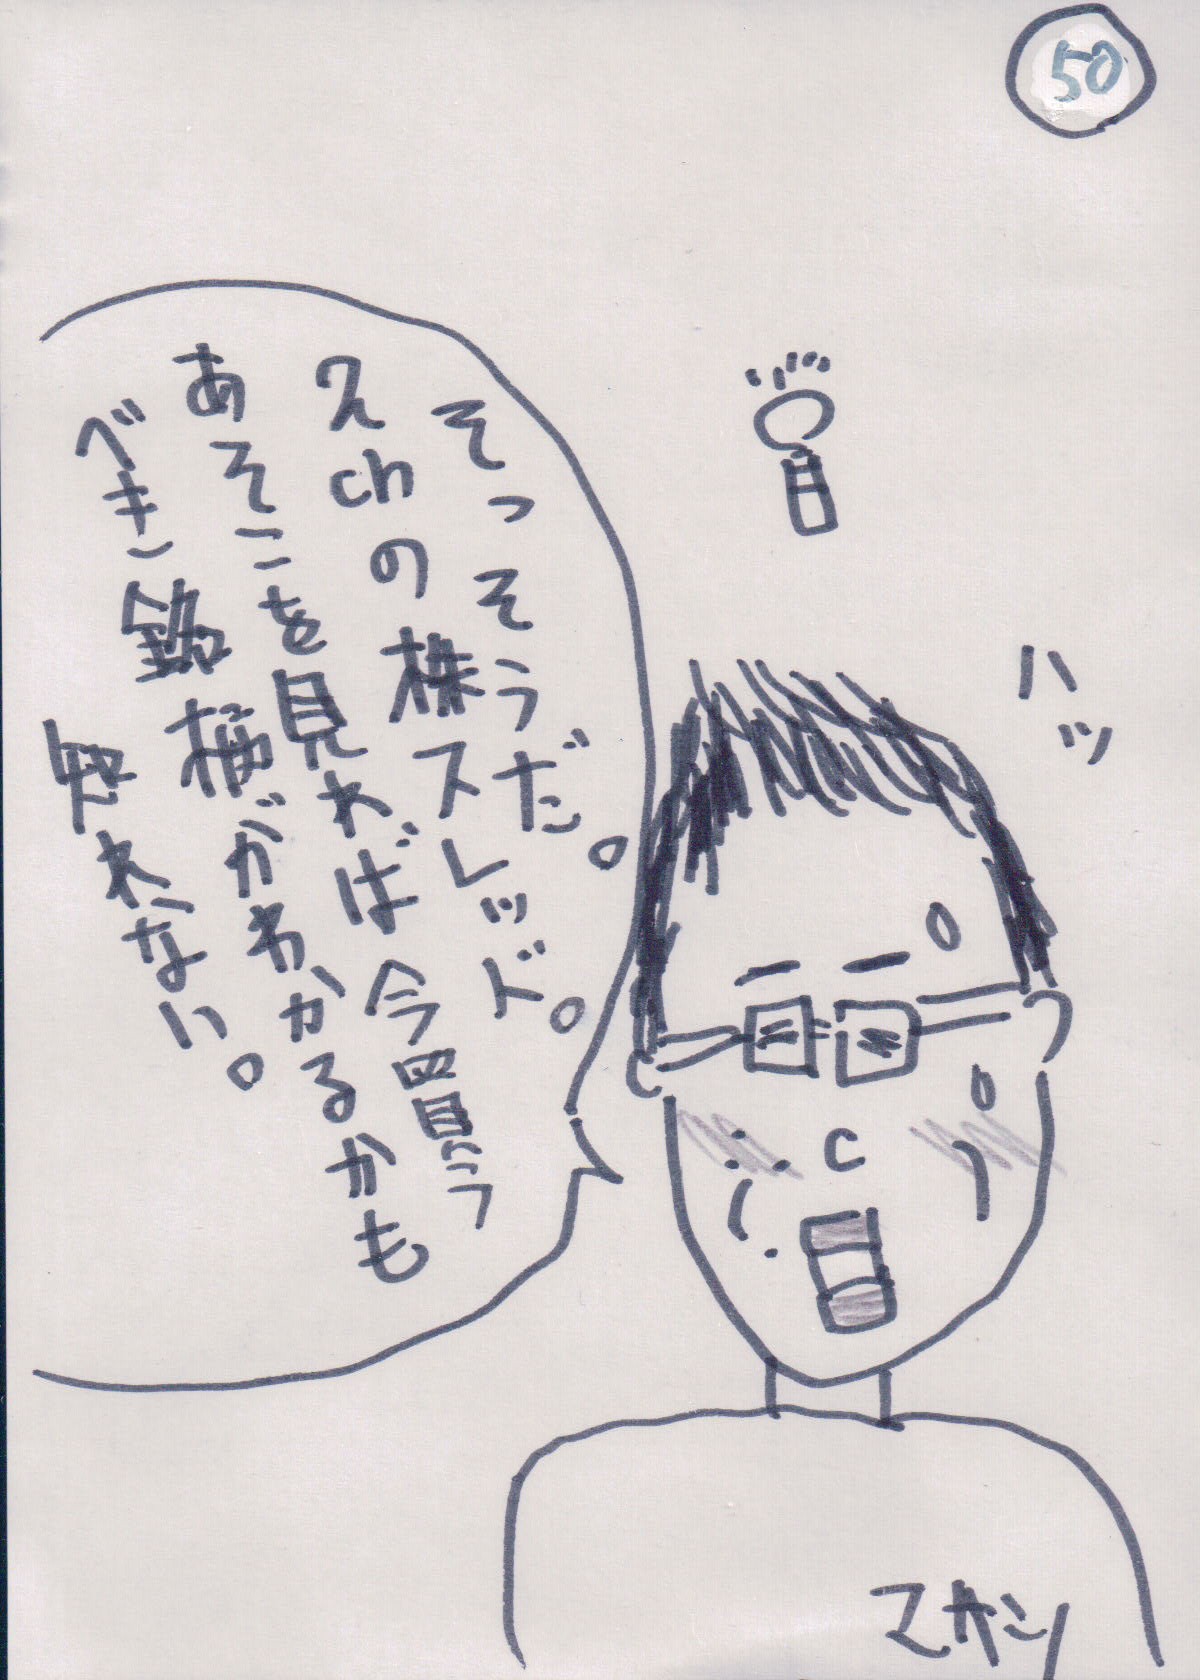 50
ハッ
そっそうだ。
2chの株スレッド。
あそこを見れば今買う
べき銘柄がわかるかも
知れない。
マサシ